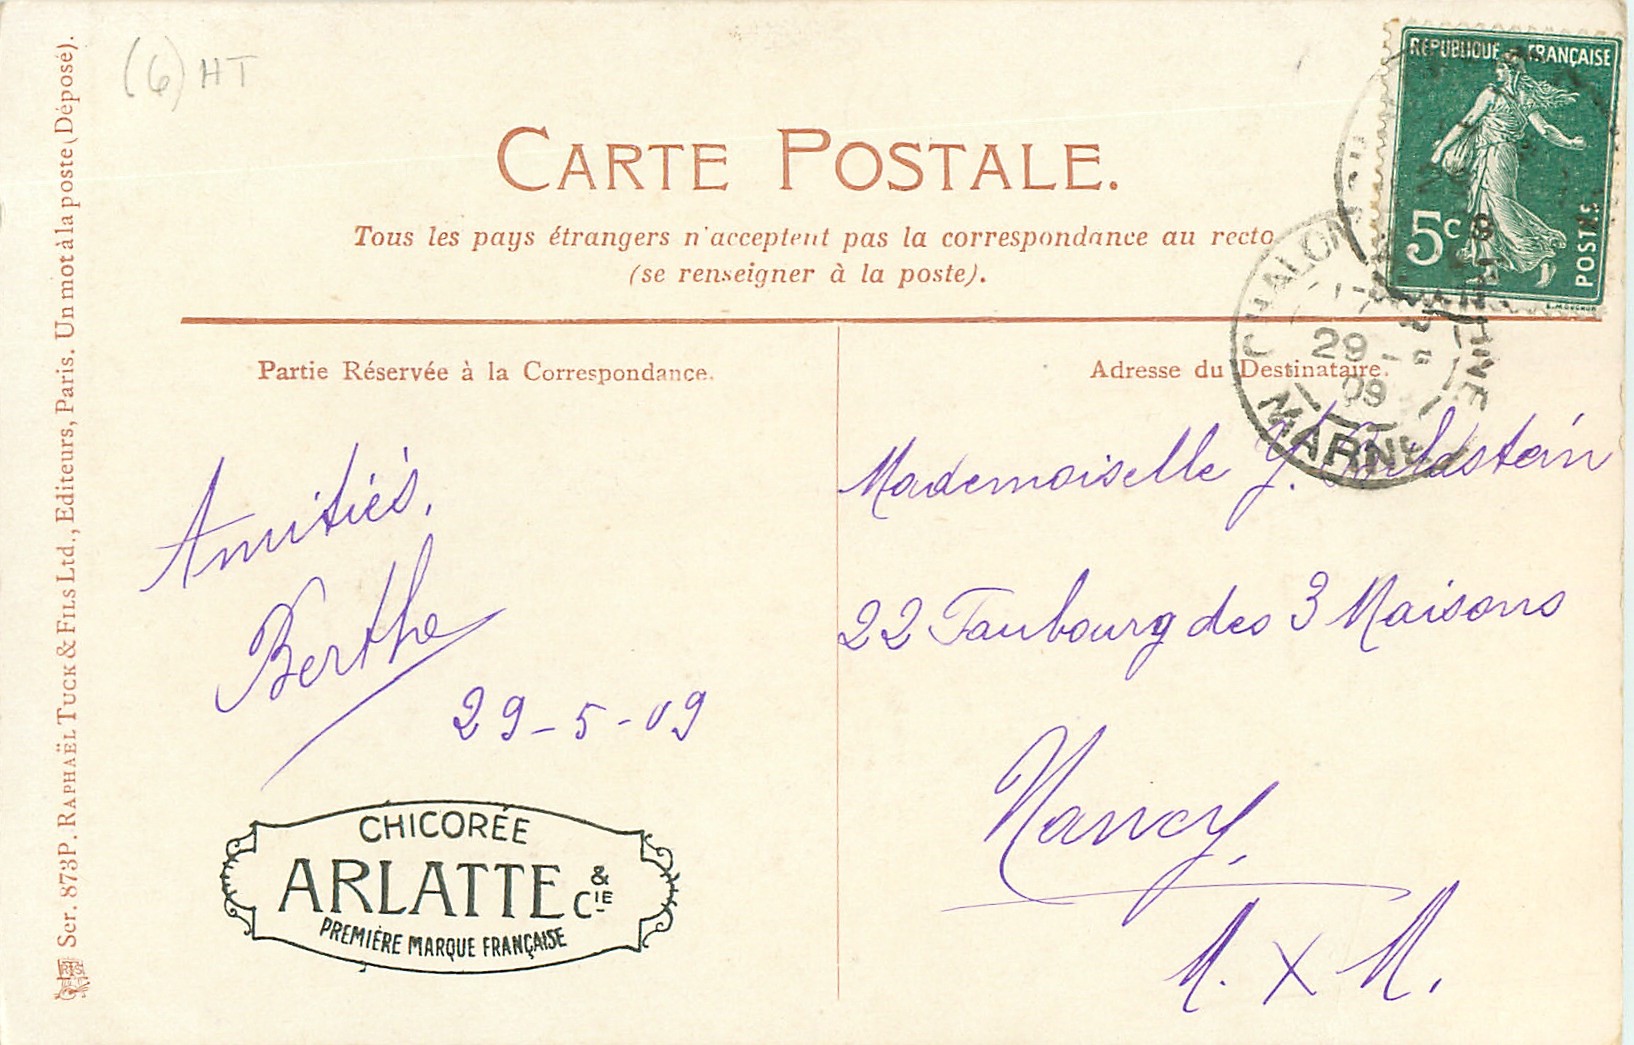 (6) HT
CARTE POSTALE.
Tous les pays étrangers n'acceptent pas la correspondance au recto
(se renseigner à la poste).
RÉPUBLIQUE FRANÇAISE
5c
POSTES
CHALONS MARNE
29 - 5
09
MARNE
Partie Réservée à la Correspondance.
Amitiés.
Berthe
29-5-09
CHICORÉE
ARLATTE & CIE
PREMIÈRE MARQUE FRANÇAISE
Adresse du Destinataire.
Mademoiselle J.
22 Faubourg des 3 Maisons
Nancy,
M. x M.
Ser. 873P. RAPHAËL TUCK & FILS Ltd., Editeurs, Paris. Un mot à la poste (Déposé).